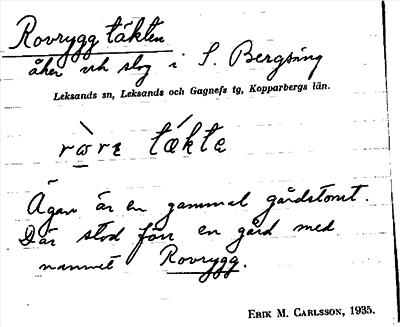 Rovrygg täkten
åker och slog i S. Bergsäng
Leksands sn, Leksands och Gagnefs tg, Kopparbergs län.
tækta
Ägan är en gammal gårdstomt.
Där stod förr en gård med
namnet Rovrygg.
ERIK M. CARLSSON, 1935.